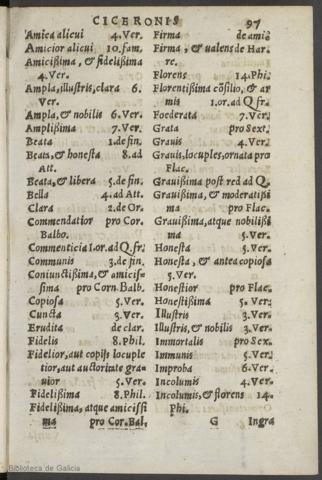 CICERONIS 97
Amica alicui 4.Ver.
Amicior alicui 10.fam.
Amicißima, & fidelißima
4.Ver.
Ampla, illustris, clara 6.
Ver.
Ampla, & nobilis 6. Ver.
Amplißima 7.Ver.
Beata 1.de fin.
Beata, & honesta 8.ad
Att.
Beata, & libera 5.de fin.
Bella 4.ad Att.
Clara 2.de Or.
Commendatior pro Cor.
Balbo.
Commenticia 1.or.ad Q.fr.
Communis 3.de fin.
Coniunctißima, & amicis=
sima pro Corn.Balb.
Copiosa 5.Ver.
Cuncta 3.Ver.
Erudita de clar.
Fidelis 8.Phil.
Fidelior, aut copijs locuple
tior, aut auctoritate gra=
uior 5.Ver.
Fidelißima 8.Phil.
Fidelißima, atque amicissi
ma pro Cor.Bal.
Firma de amic̃
Firma, & ualens de Har.
re.
Florens 14.Phi.
Florentißima cõsilio, & ar
mis 1.or.ad Q.fr.
Foederata 7.Ver.
Grata pro Sext.
Grauis 4.Ver.
Grauis, locuples, ornata pro
Flac.
Grauißima post red ad Q.
Grauißima, & moderatißi
ma pro Flac.
Grauißima, atque nobilißi
ma 5.Ver.
Honesta 5.Ver.
Honesta, & antea copiosa
5.Ver.
Honestior pro Flac.
Honestißima 5.Ver.
Illustris 3.Ver.
Illustris, & nobilis 3.Ver.
Immortalis pro Sex.
Immunis 5.Ver.
Improba 6.Ver.
Incolumis 4.Ver.
Incolumis, & florens 14.
Phi.
G Ingra
Biblioteca de Galicia